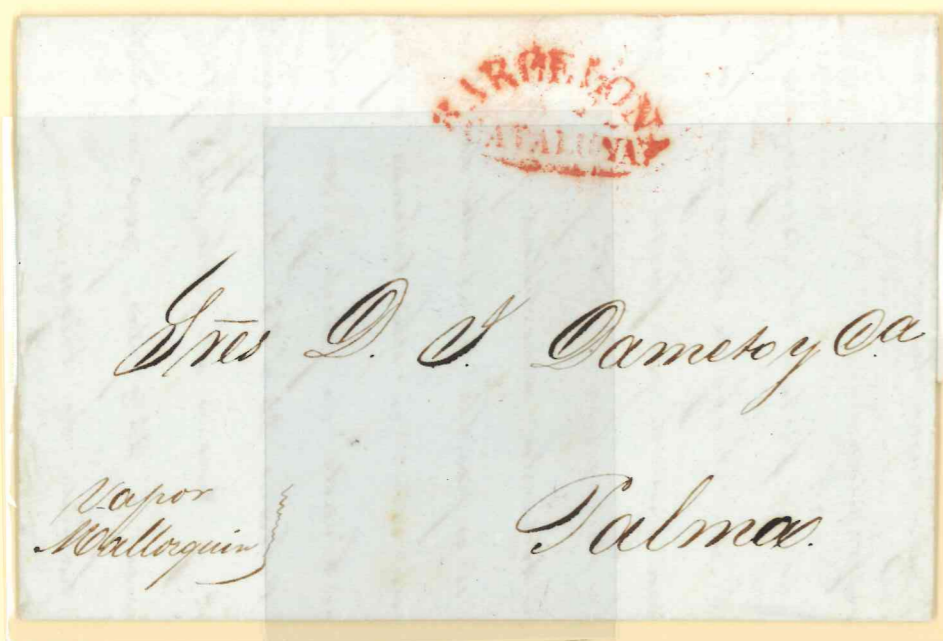 BARCELONA
CATALUÑA
Sres D. J. Dameto y Ca
Vapor
Mallorquin
Palma.